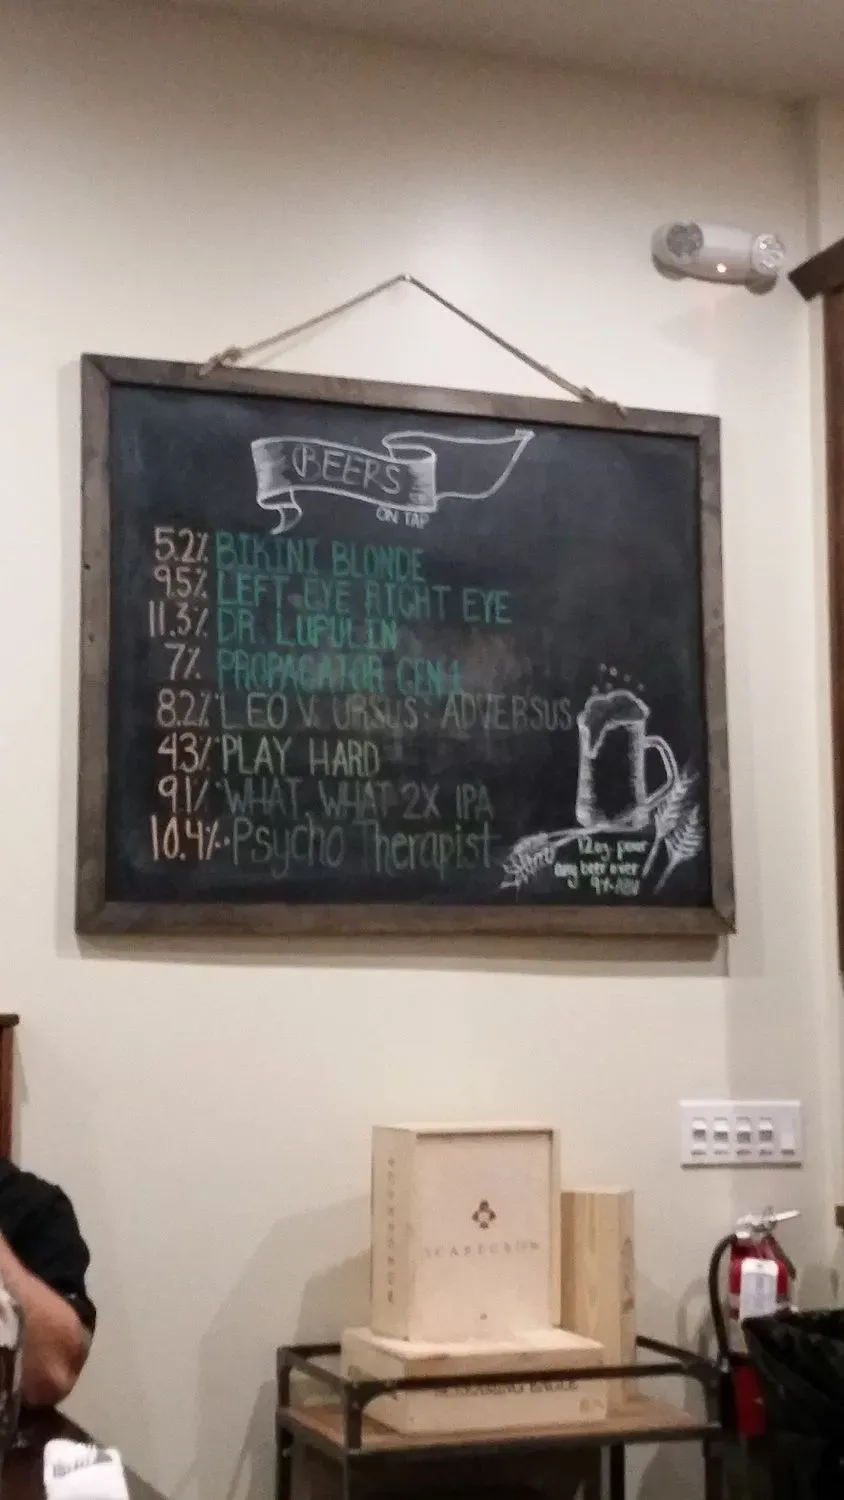 BEERS
ON TAP
5.2% BIKINI BLONDE
9.5% LEFT EYE RIGHT EYE
11.3% DR. LUPULIN
7% PROPAGATOR GEN.1
8.2% LEO V. URSUS: ADVERSUS
43% PLAY HARD
9.1% WHAT WHAT 2X IPA
10.4% Psycho Therapist
12oz pour
any beer over
9% ABV
SCARECROW
SCREAMING EAGLE